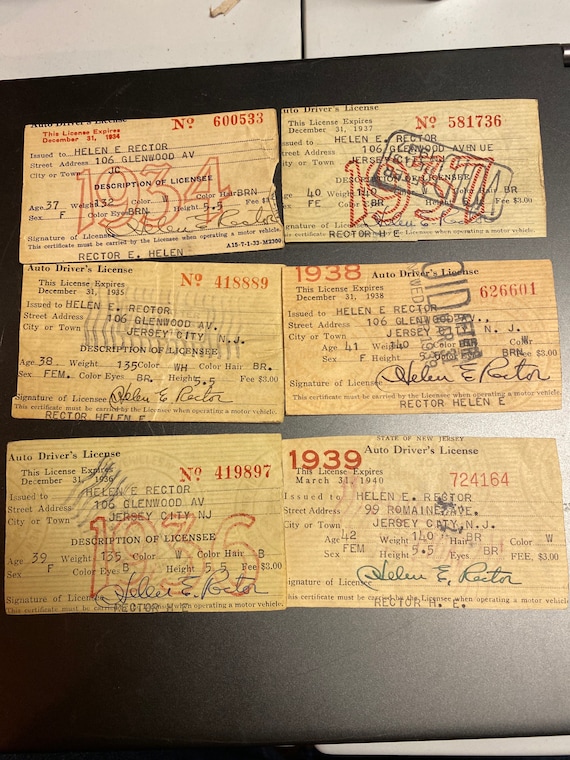 Auto Driver's License
This License Expires
December 31, 1934
No 600533
Issued to HELEN E RECTOR
Street Address 106 GLENWOOD AV
City or Town JC
1934
DESCRIPTION OF LICENSEE
Age 37 Weight 132 Color W Color Hair BRN
Sex F Color Eyes BRN Height 5.5
Signature of Licensee Helen E Rector
This certificate must be carried by the Licensee when operating a motor vehicle.
A15-7-1-33-M2300
RECTOR E. HELEN
Auto Driver's License
This License Expires
December 31, 1937
No 581736
Issued to HELEN E. RECTOR
Street Address 106 GLENWOOD AVIN UE
City or Town JERSEY
1937
DESCRIPTION OF LICENSEE
Age 40 Weight 140 Color Hair BR
Sex F Fee $3.00
Signature of Licensee Helen E. Rector
This certificate must be carried by the Licensee when operating a motor vehicle.
RECTOR H E
Auto Driver's License
This License Expires
December 31, 1935
No 418889
Issued to HELEN E. RECTOR
Street Address 106 GLENWOOD AV.
City or Town JERSEY CITY, N.J.
DESCRIPTION OF LICENSEE
Age 38 Weight 135 Color WH Color Hair BR.
Sex FEM. Color Eyes BR. Height 5.5 Fee $3.00
Signature of Licensee Helen E Rector
This certificate must be carried by the Licensee when operating a motor vehicle.
RECTOR HELEN E
1938
Auto Driver's License
This License Expires
December 31, 1938
626601
Issued to HELEN E RECTOR
Street Address 106 GLENWOOD AV.
City or Town JERSEY CITY N. J.
Age 41 Weight 140 Color W
Sex F Height BRN Fee $3.00
Signature of Licensee Helen E Rector
This certificate must be carried by the Licensee when operating a motor vehicle.
RECTOR HELEN E
Auto Driver's License
This License Expires
December 31, 1936
No 419897
Issued to HELEN E RECTOR
Street Address 106 GLENWOOD AV
City or Town JERSEY CITY NJ
1936
DESCRIPTION OF LICENSEE
Age 39 Weight 135 Color W Color Hair B
Sex F Color Eyes B Height 5.5 Fee $3.00
Signature of Licensee Helen E. Rector
This certificate must be carried by the Licensee when operating a motor vehicle.
RECTOR H E
STATE OF NEW JERSEY
1939
Auto Driver's License
This License Expires
March 31, 1940
724164
Issued to HELEN E. RECTOR
Street Address 99 ROMAINE AVE.
City or Town JERSEY CITY N.J.
Age 42 Weight 140 Hair BR Color W
Sex FEM Height 5.5 Eyes BR FEE, $3.00
Signature of Licensee Helen E. Rector
This certificate must be carried by the Licensee when operating a motor vehicle.
RECTOR H. E.